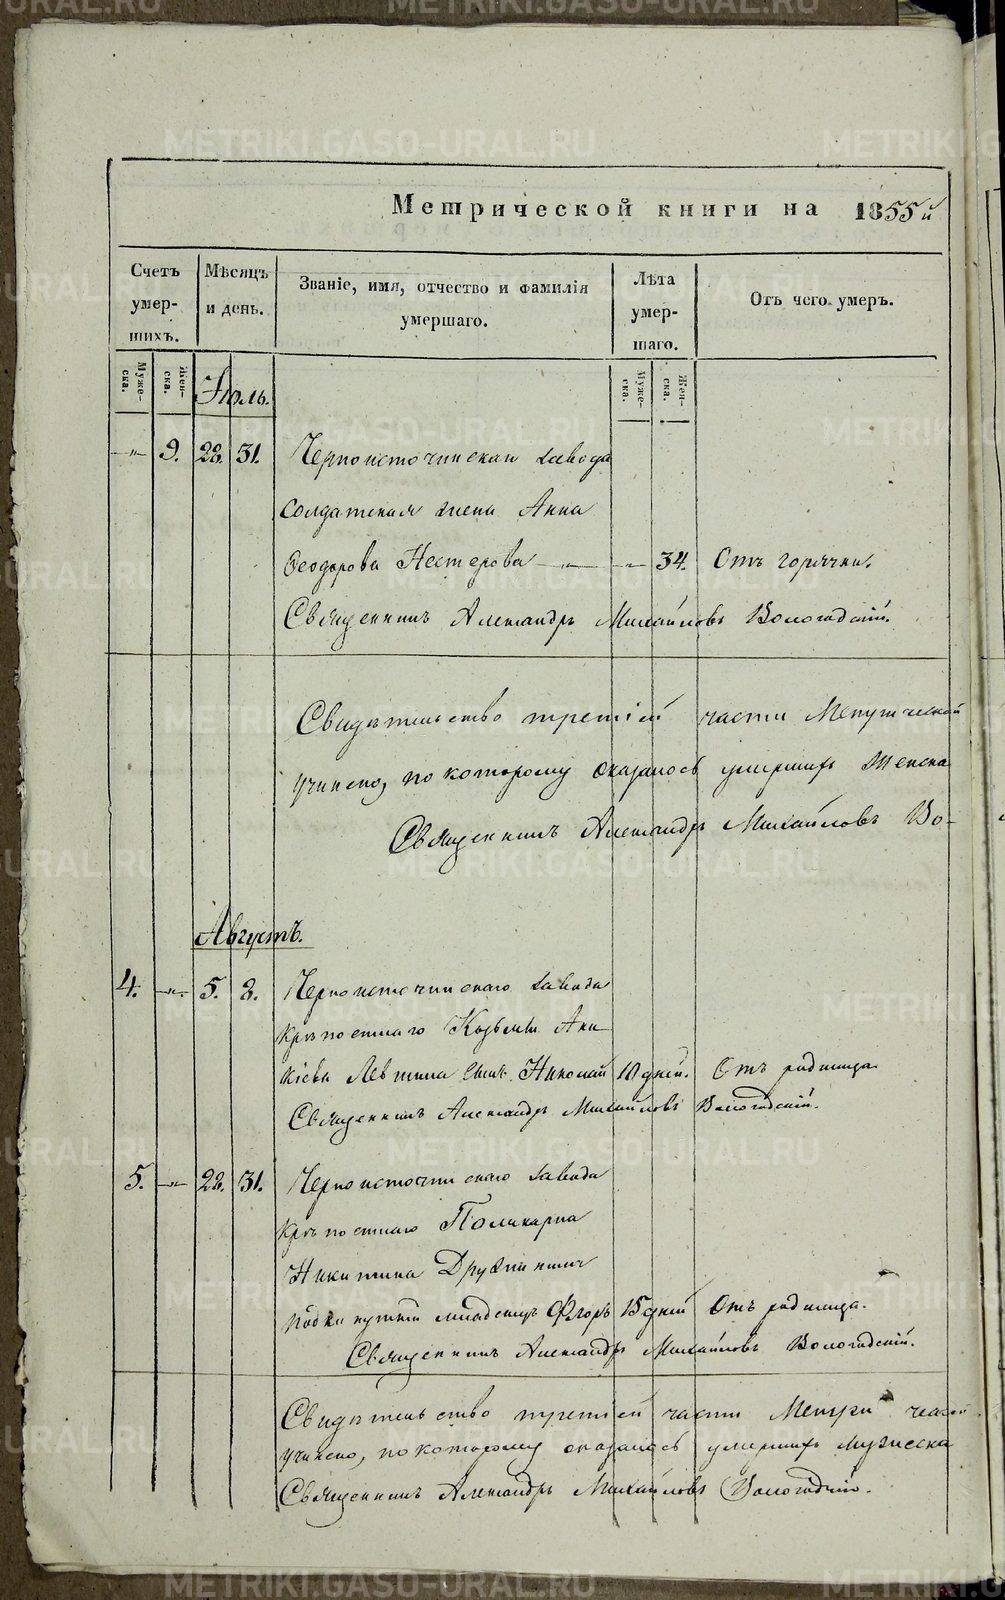 METRIKI.GASO-URAL.RU
Метрической книги на 1855й
Счетъ умер-шихъ.
Мѣсяцъ и день.
Званіе, имя, отчество и фамилія умершаго.
Лѣта умер-шаго.
Отъ чего умеръ.
Муже-ска.
Жен-ска.
Июль.
Муже-ска.
Жен-ска.
-„- 9. 28. 31. Черноисточинскаи завода
солдатская жена Анна
Феодорова Нестерова -„- -„- 34. Отъ горячки.
Священникъ Александръ Михайловъ Вологодскій.
Свидѣтельство третіей части Метрической
учинено, по которому оказалось умершихъ Женска
Священникъ Александръ Михайловъ Во-
Августъ.
4. -„- 5. 8. Черноисточинскаго завода
крѣпостнаго Козьмы Ана
кіева Левтина сынъ Николай 10 дней. Отъ родимца.
Священникъ Александръ Михайловъ Вологодскій.
5. -„- 28. 31. Черноисточинскаго завода
Крѣпостнаго Поликарпа
Никитина
младенецъ Флоръ 15 дней Отъ родимца.
Священникъ Александръ Михайловъ Вологодскій.
Свидѣтельство третіей части Метрической
учинено, по которому оказалось умершихъ мужеска
Священникъ Александръ Михайловъ Вологодскій.